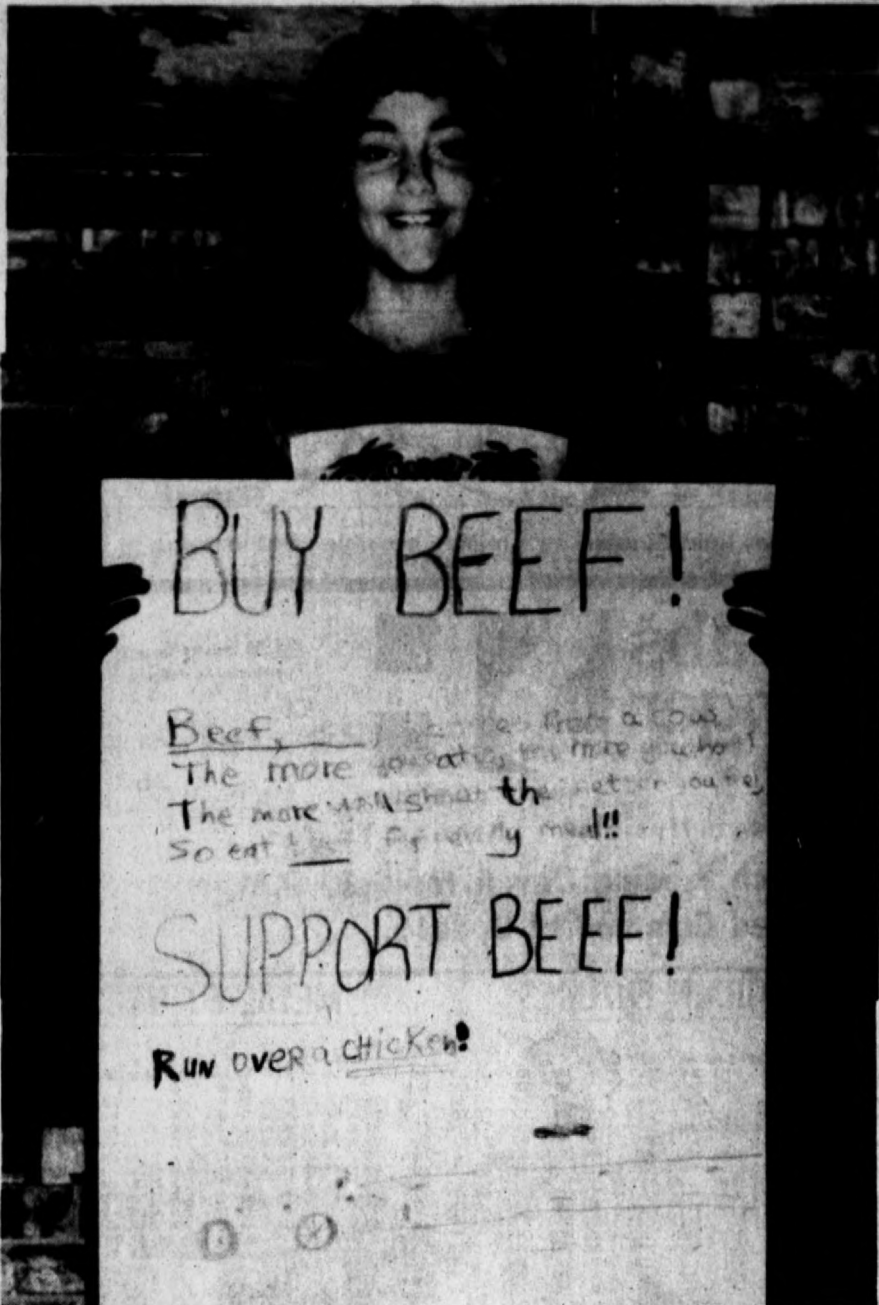 BUY BEEF!
Beef, comes from a cow,
The more you eat, the more you
The more the better you
So eat for every meal!!
SUPPORT BEEF!
RUN OVER a CHICKEN!